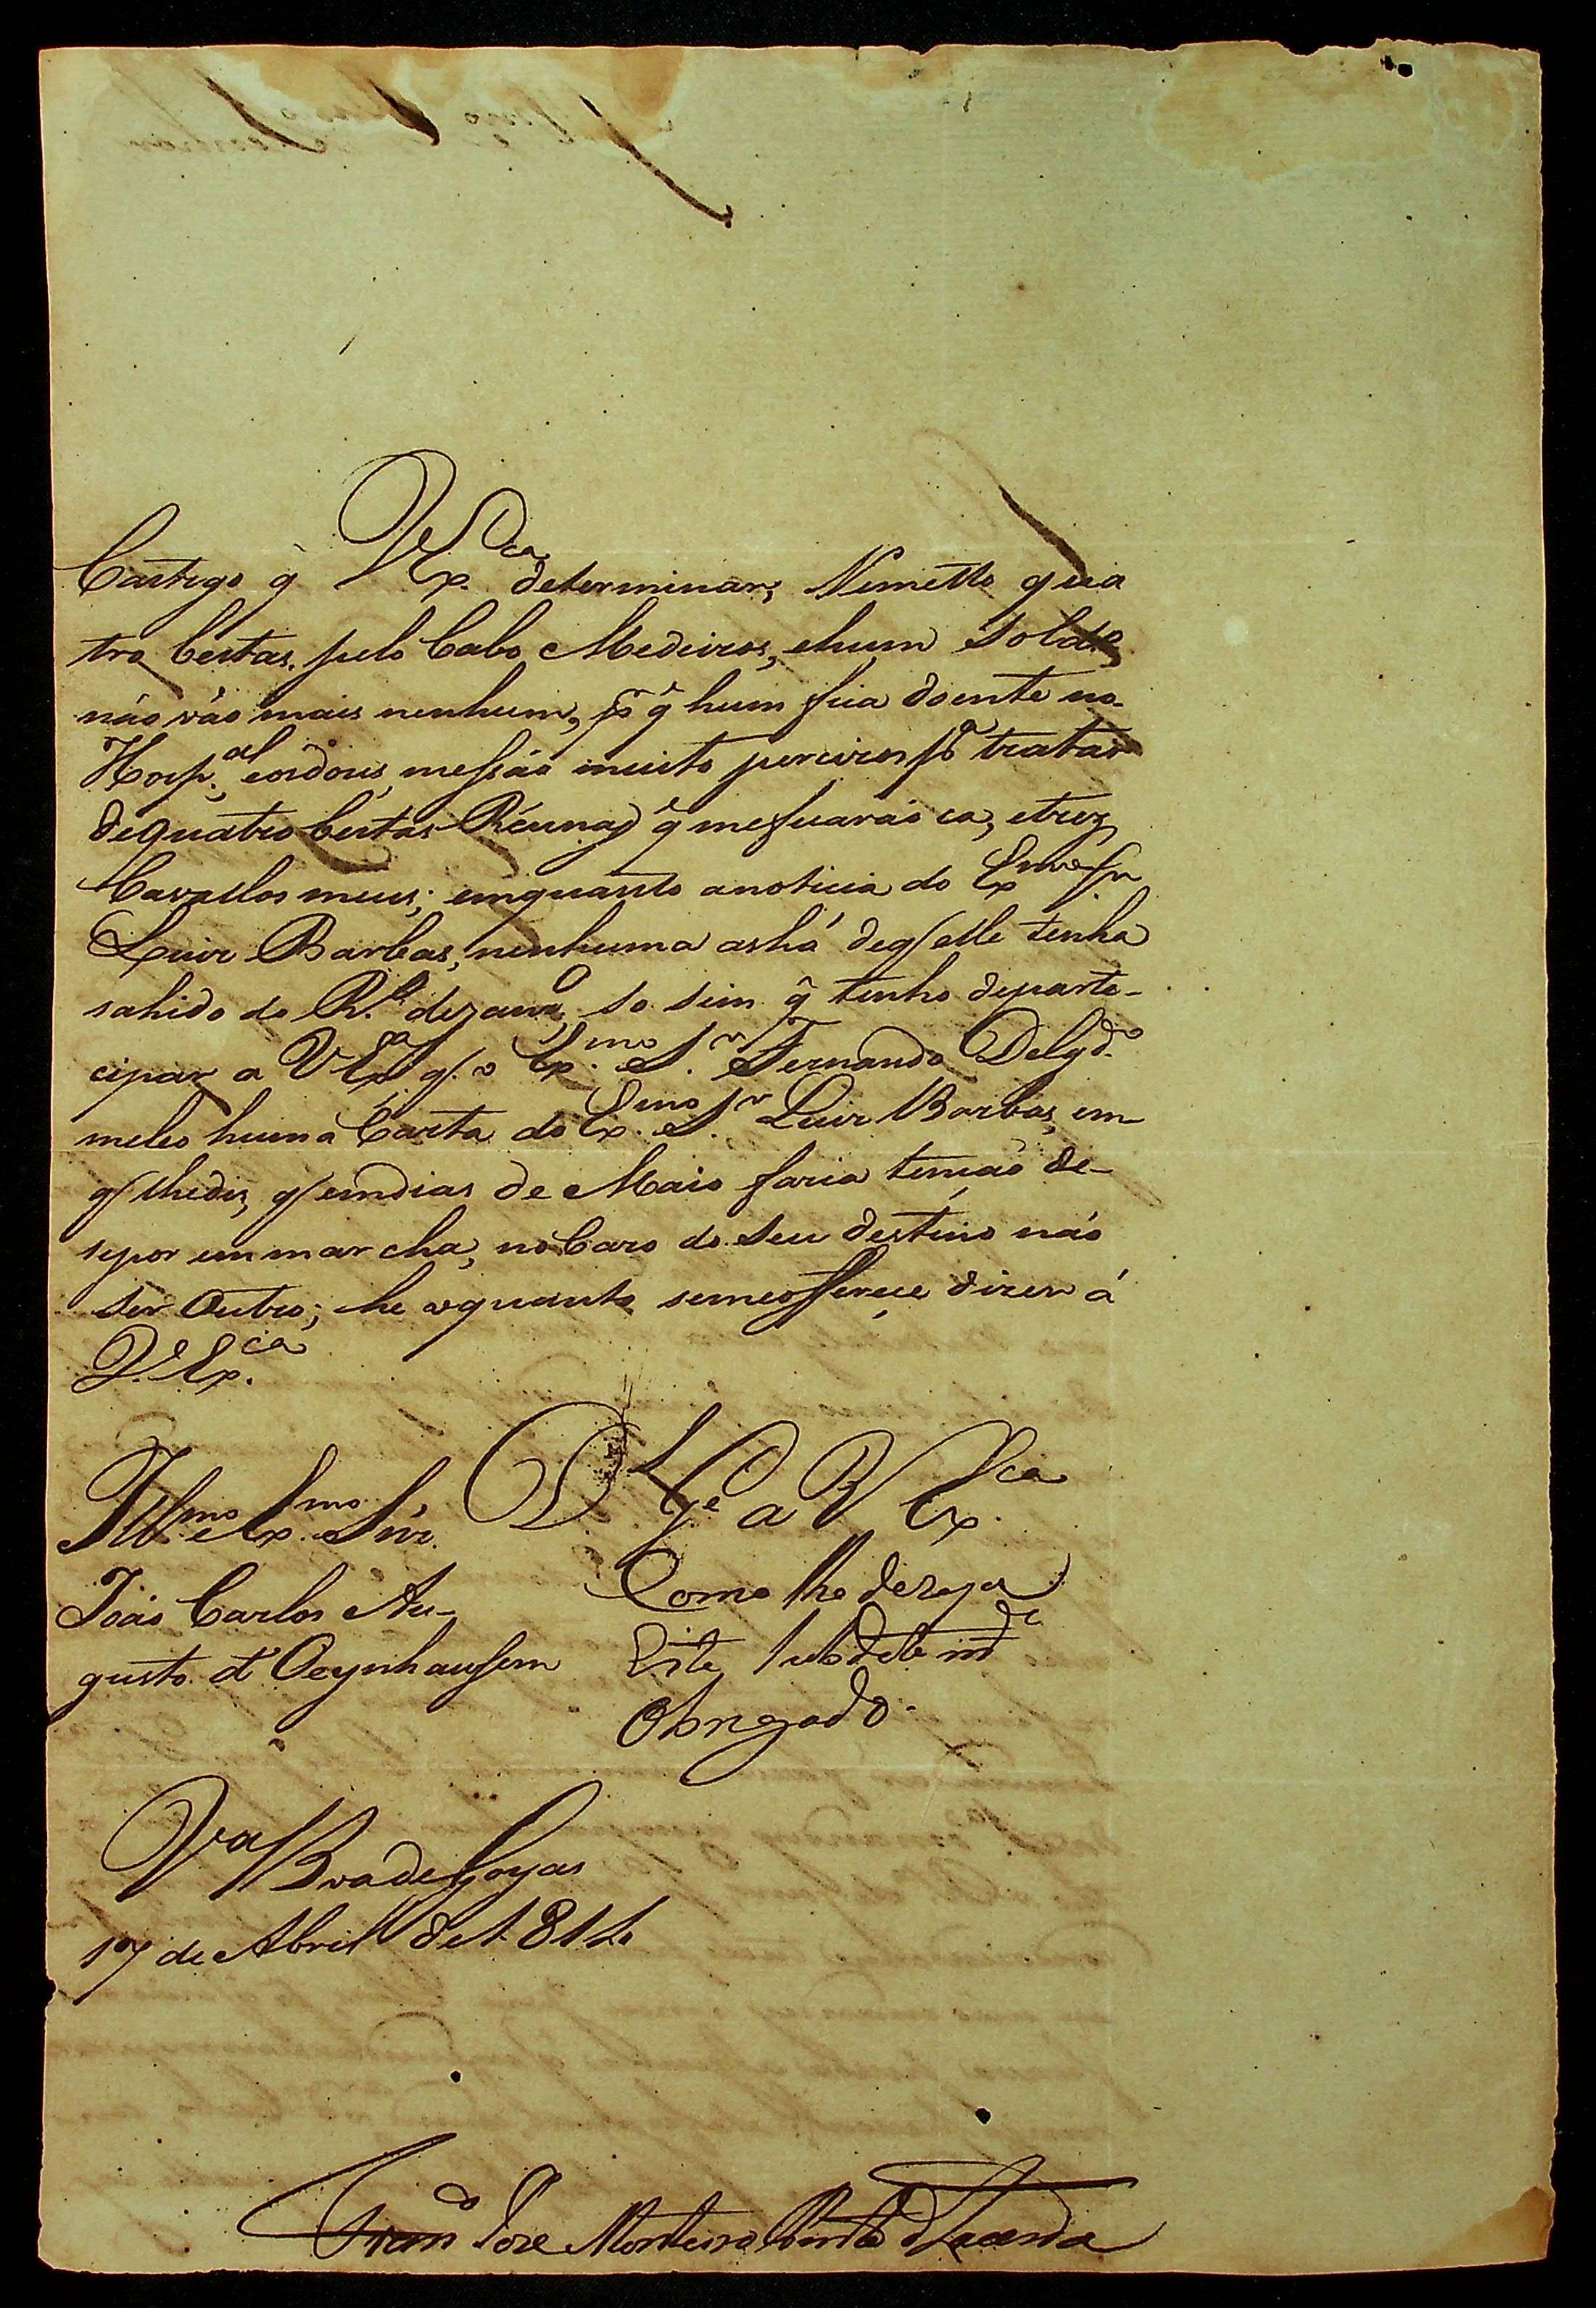 Castigo q̃ V Exᶜᵃ determinar; Remetto qua
tro bestas, pelo Cabo Medeiros, ehum Soldᵒ,
não vão mais nenhum, pʳ q̃ hum fica doente no
Hospᵃˡ, eosdois, mesſão muito percizos pᵃ tratar
dequatro bestas Réunas q̃ meficarão ca, etrez
Cavallos meus; emquanto anoticia do Exᵐᵒ Sʳ
Luiz Barbas, nenhuma as há deq̃ elle tenha
sahido do Rᵒ dezanrᵒ, so sim q̃ tenho departe-
cipar a V Exᵃ q̃ o Exᵐᵒ Sʳ Fernando Delgdᵒ
meleo huma Carta do Exᵐᵒ Sʳ Luiz Barbas, em
q̃ lhediz, q̃ emdias de Maio faria tenção de-
sepor emmarcha, no Cazo do Seu destino não
ser Outro; he oquanto semeofferece dizer á
V. Exᶜᵃ.
Dˢ Gᵉ a V Exᶜᵃ
Illᵐᵒ e Exᵐᵒ Snr.
Como lhe dezeja
João Carlos Au-
Este Subdito mᵗᵒ
gusto d' Oeynhausem
Obrigado.
Vᵃ Boa de Goyas
17 de Abril de 1811
Franᶜᵒ Joze Monteiro Pinto Lacerda